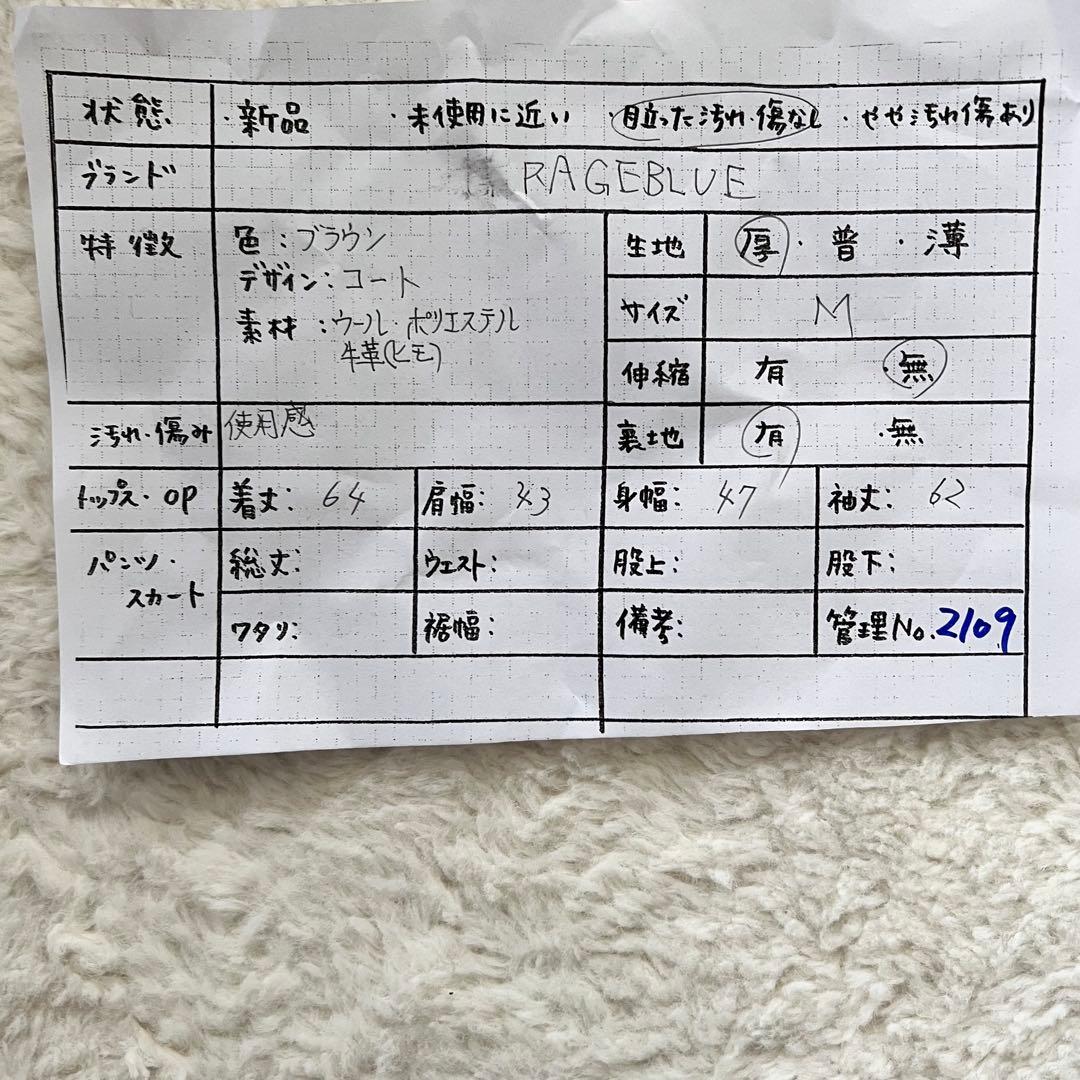 状態 ・新品 ・未使用に近い ・目立った汚れ・傷なし ・やや汚れ傷あり
ブランド RAGEBLUE
特徴 色：ブラウン
デザイン：コート
素材：ウール・ポリエステル
牛革(ヒモ)
生地 厚・普・薄
サイズ M
伸縮 有 ・無
汚れ・傷み 使用感
裏地 有 ・無
トップス・OP 着丈：64 肩幅：43 身幅：47 袖丈：62
パンツ・スカート 総丈： ウエスト： 股上： 股下：
ワタリ： 裾幅： 備考： 管理No.2109